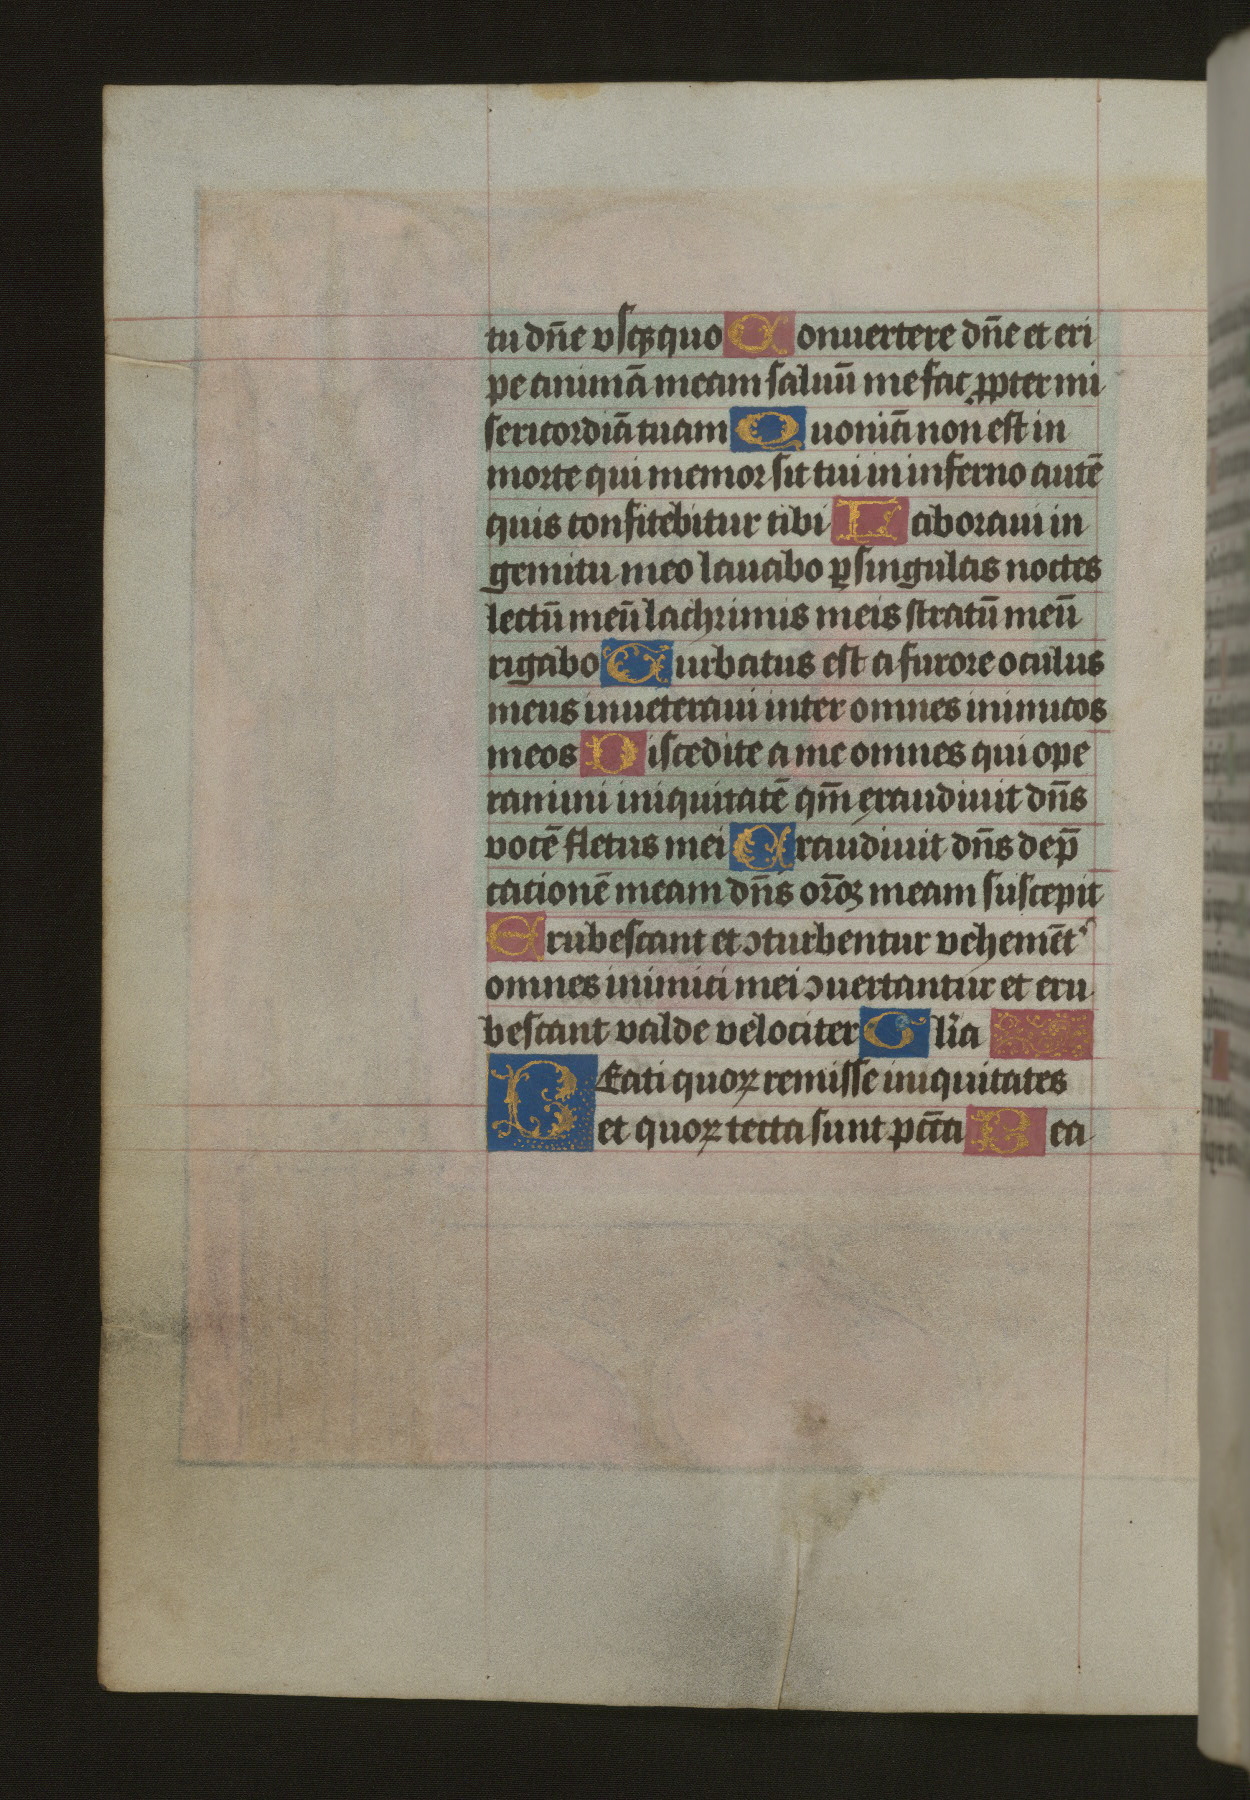 tu dn̄e vsqꝫquo Conuertere dn̄e et eri
pe animā meam saluū me fac ꝓpter mi
sericordiā tuam Quoniā non est in
morte qui memor sit tui in inferno autē
quis confitebitur tibi Laboraui in
gemitu meo lauabo ꝑ singulas noctes
lectū meū lachrimis meis stratū meū
rigabo Turbatus est a furore oculus
meus inueteraui inter omnes inimicos
meos Discedite a me omnes qui ope
ramini iniquitatē qm̄ exaudiuit dn̄s
vocē fletus mei Exaudiuit dn̄s dep̄
cationē meam dn̄s or̄oꝫ meam suscepit
Erubescant et ꝯturbentur vehemēt᷑
omnes inimici mei ꝯuertantur et eru
bescant valde velociter Gl̄ia
BEati quoꝝ remisse iniquitates
et quoꝝ tecta sunt pct̄a Bea